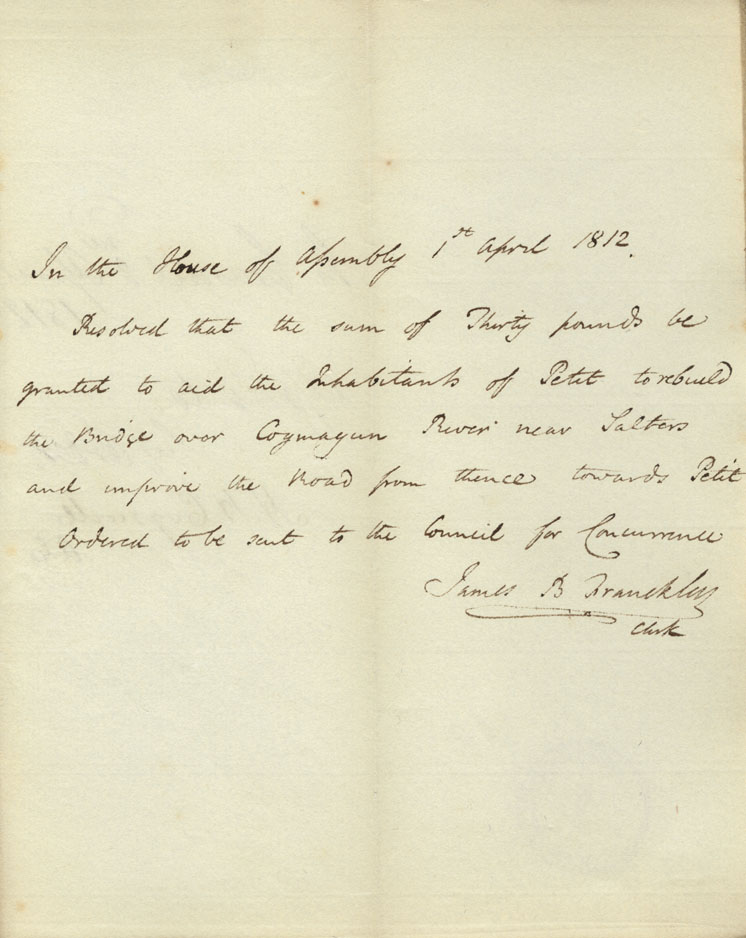 In the House of Assembly 1st April 1812.
Resolved that the sum of Thirty pounds be
granted to aid the Inhabitants of Petit to rebuild
the Bridge over Cogmagun River near Salters
and improve the Road from thence towards Petit
Ordered to be sent to the Council for Concurrence
James B Franckling
Clerk